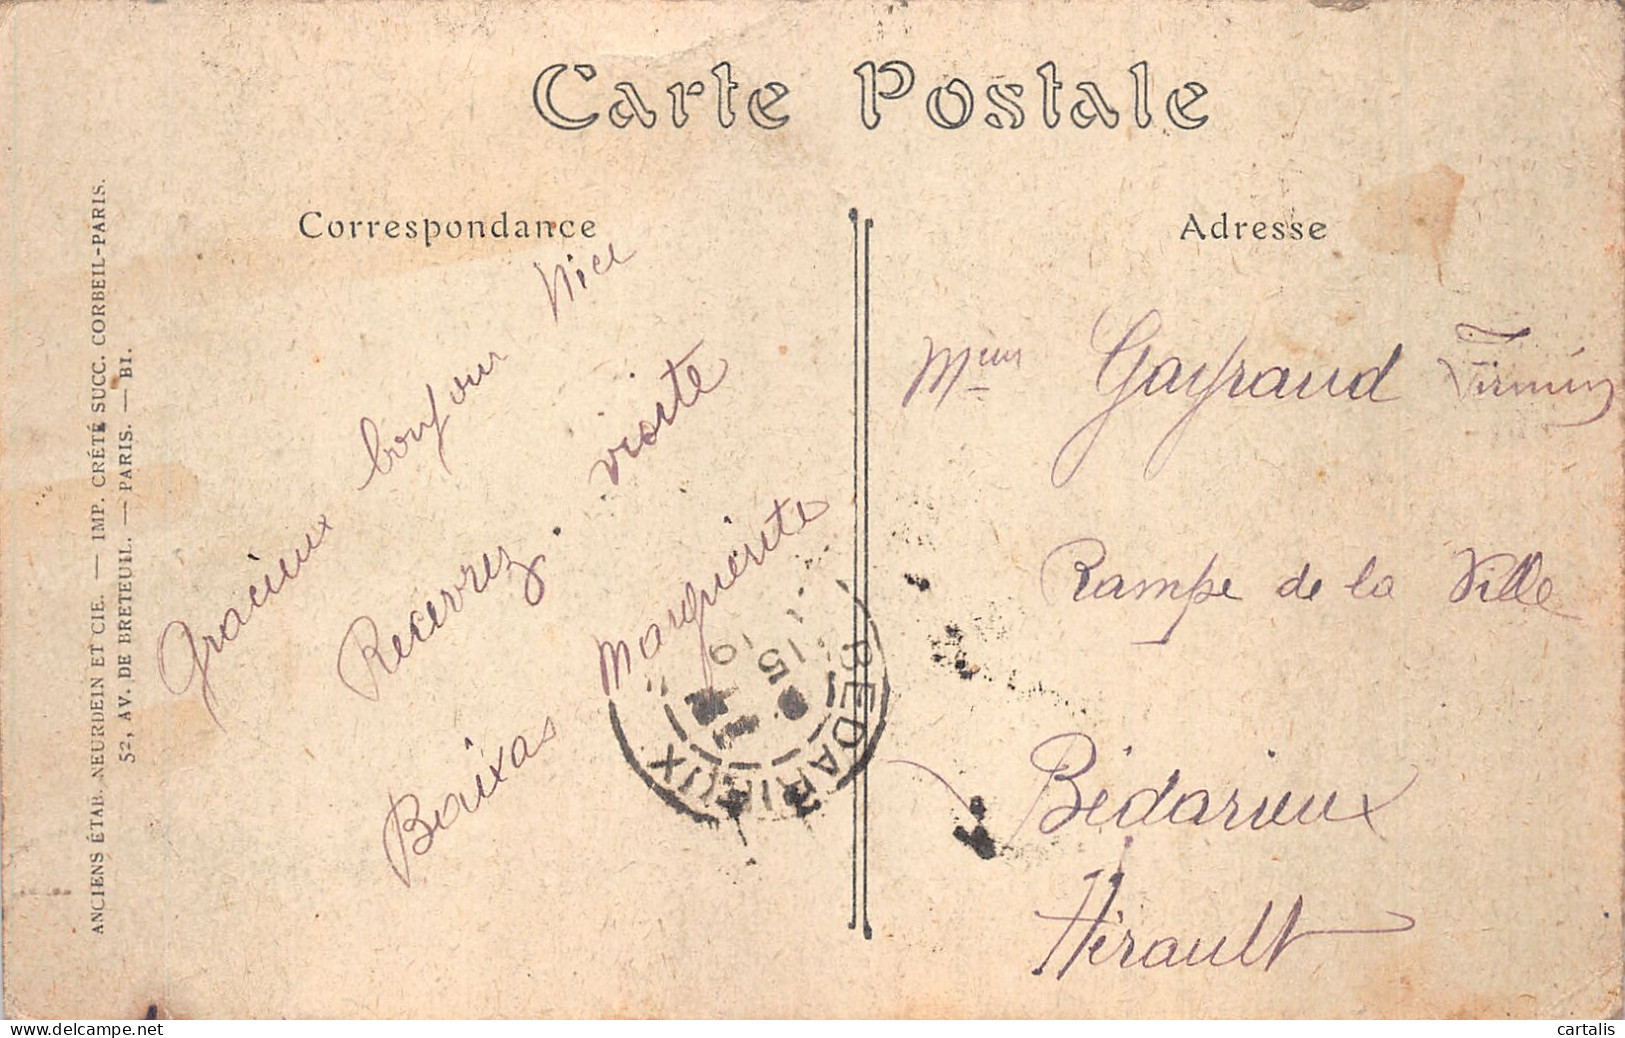 Carte Postale
Correspondance
Adresse
ANCIENS ÉTAB. NEURDEIN ET CIE. — IMP. CRÉTÉ SUCC. CORBEIL-PARIS.
52, AV. DE BRETEUIL. — PARIS. — BI.
Gracieux bonjour
Recevrez visite
Baixas Marguerite
BEDARIEUX
15
19
Gayraud Firmin
Rampe de la Ville
Bédarieux
Hérault
delcampe.net
cartalis